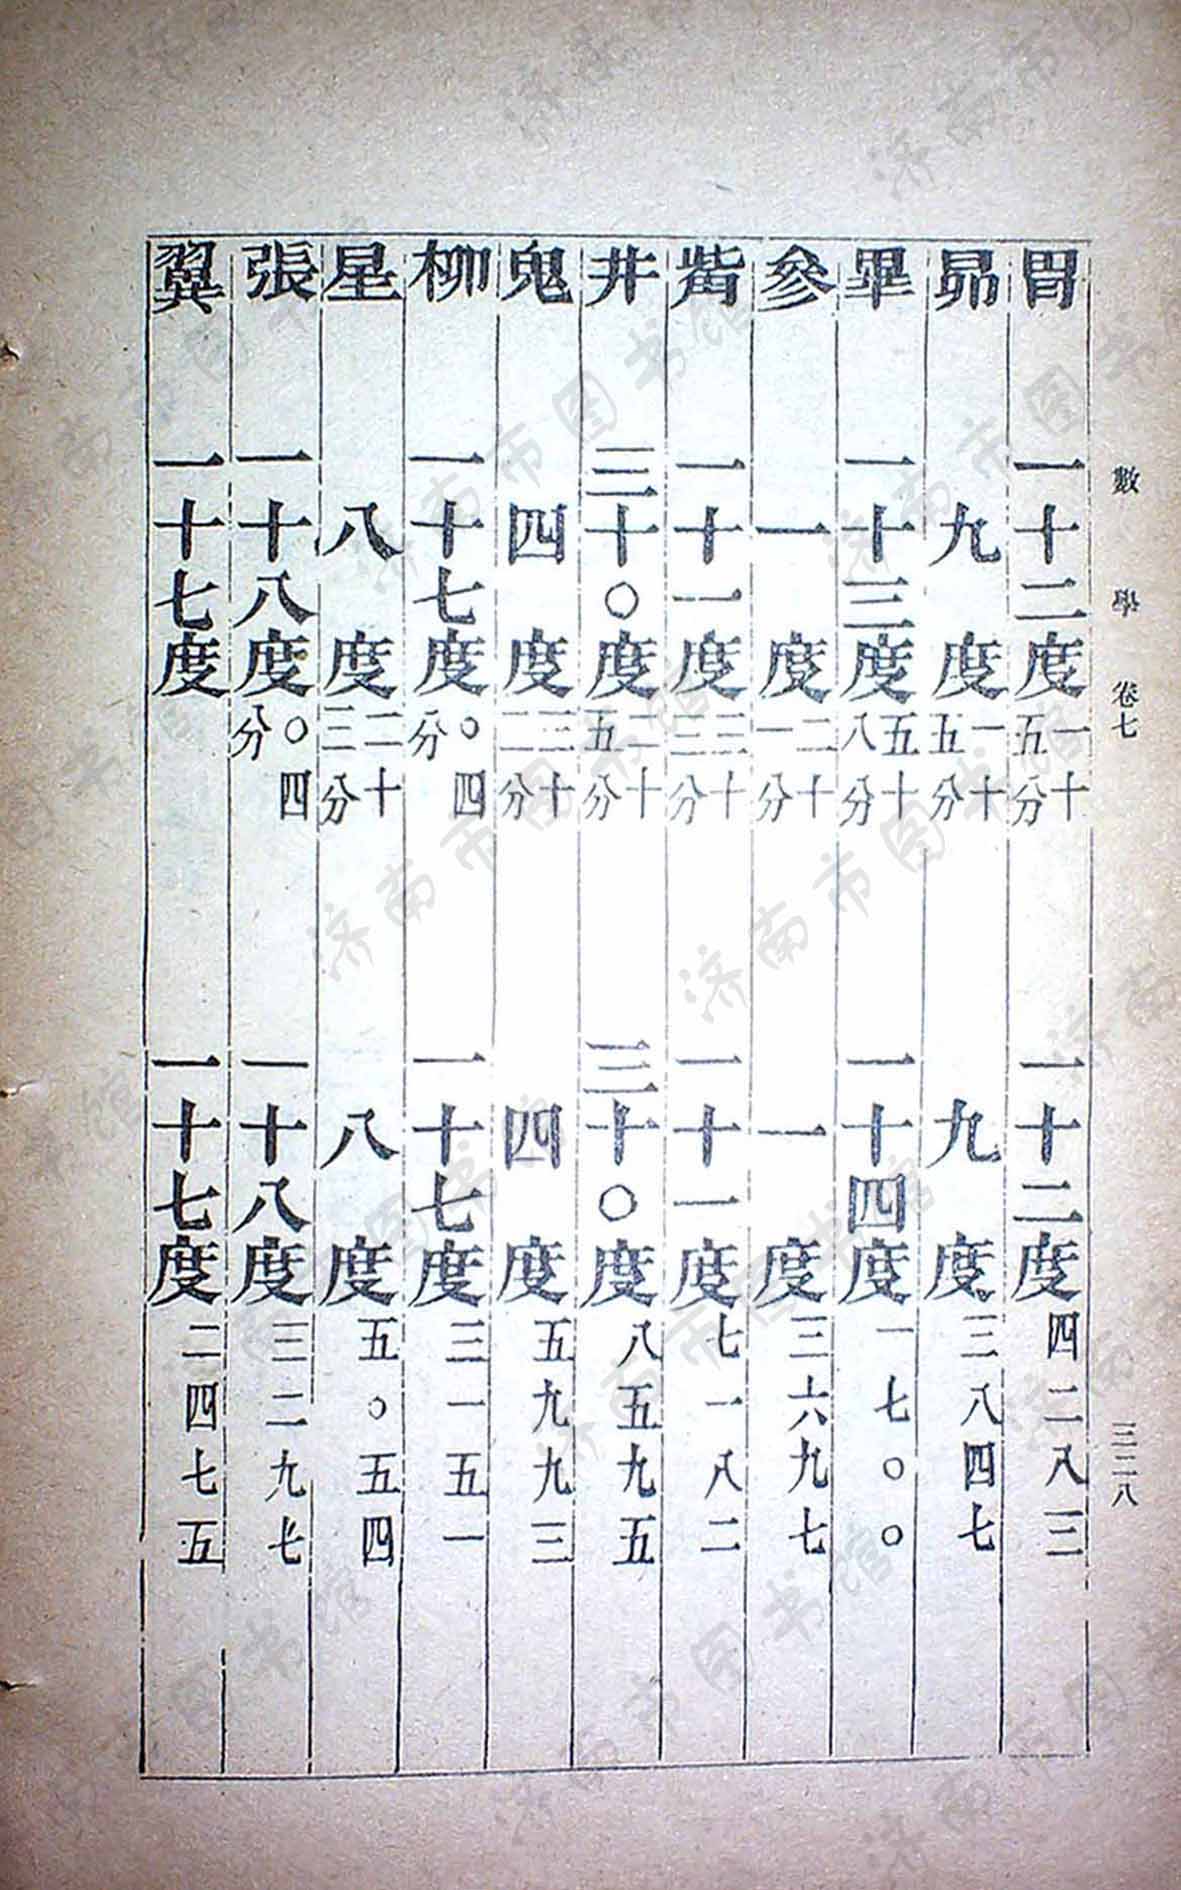 數學 卷七 三二八
胃 一十二度 一十五分 一十二度四二八三
昴 九度 一十五分 九度三八四七
畢 一十三度 五十八分 一十四度一七〇〇
參 一度 二十一分 一度三六九七
觜 一十一度 三十三分 一十一度七一八二
井 三十〇度 二十五分 三十〇度八五九五
鬼 四度 三十二分 四度五九九三
柳 一十七度 〇四分 一十七度三一五一
星 八度 二十三分 八度五〇五四
張 一十八度 〇四分 一十八度三二九七
翼 一十七度 一十七度二四七五
济南市图书馆